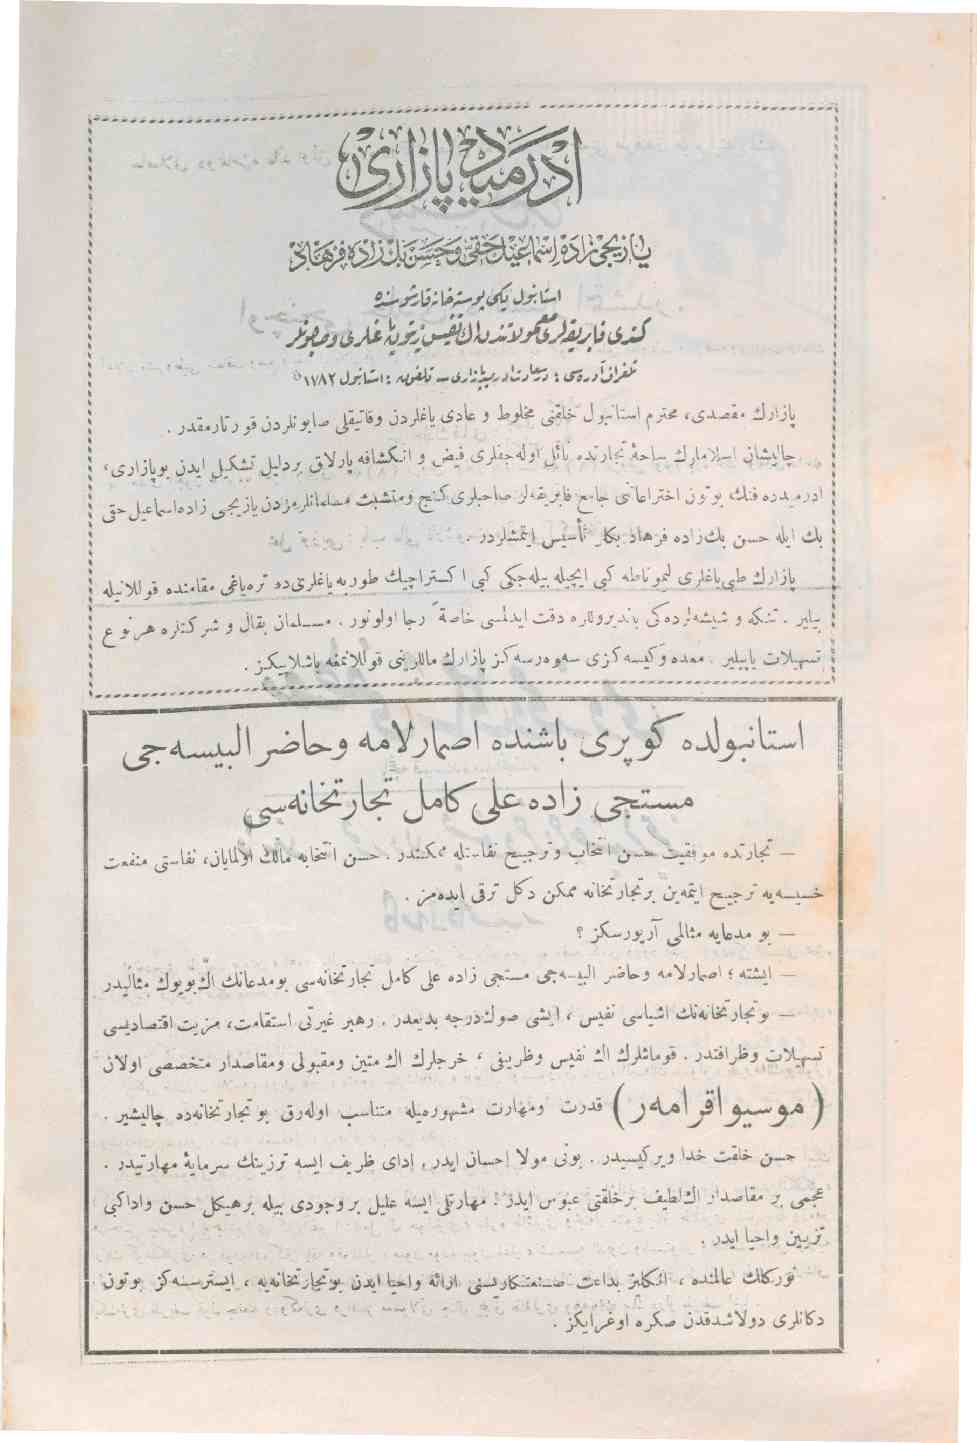 ادرميد پازارى
يازيجى زاده اسماعيل حقى و حسن بك زاده فرهاد
استانبول يكى پوسته خانه قارشوسنده
كندى فابريقه‌لرى معمولاتندن اك نفيس زيتون ياغلرى و صابونلر
تلغراف آدره‌سى : درسعادت ادرميد پازارى — تلفون : استانبول ١٧٨٢
پازارك مقصدى، محترم استانبول خلقنى مخلوط و عادى ياغلردن وقاتيقلى صابونلردن قورتارمقدر .
چاليشان اسلاملرك ساحهٔ تجارتده نائل اوله‌جقلرى فيض و انكشافه پارلاق بردليل تشكيل ايدن بوپازارى،
ادرميدده فنك بوتون اختراعاتنى جامع فابريقه‌لر صاحبلرى كنج ومتشبث مسلمانلرمزدن يازيجى زاده‌اسماعيل حقى
بك ايله حسن بك‌زاده فرهاد بكلر تأسيس ايتمشلردر .
پازارك طبى‌ياغلرى ليموناطه كبى ايچيله بيله‌جكى كبى اكستراچيك طوربه ياغلرى‌ده تره‌ياغى مقامنده قوللانيله
بيلير . تنكه و شيشه‌لرده‌كى باندیروللره دقت ايدلمسى خاصةً رجا اولونور . مسلمان بقال و شركتلره هرنوع
تسهيلات ياپيلير . معده وكيسه‌كزى سه‌وه‌رسه‌كز پازارك ماللرينى قوللانمغه باشلاييكز .
استانبولده كوپرى باشنده اصمارلامه وحاضر البيسه‌جى
مستجى زاده على كامل تجارتخانه‌سى
— تجارتده موفقيت حسن انتخاب وترجيح نفاستله ممكندر . حسن انتخابه مالك اولمايان، نفاستى منفعت
خسيسه‌يه ترجيح ايتمه‌ين برتجارتخانه ممكن دكل ترقى ايده‌مز .
— بو مدعايه مثالمى آريورسكز ؟
— ايشته ؛ اصمارلامه وحاضر البيسه‌جى مستجى زاده على كامل تجارتخانه‌سى بومدعانك اك بويوك مثاليدر
— بوتجارتخانه‌نك اشياسى نفيس ، ايشى صوك‌درجه بديعدر . رهبر غيرتى استقامت، مزيت اقتصاديسى
تسهيلات وظرافتدر . قوماشلرك اك نفيس وظريفى ، خرجلرك اك متين ومقبولى ومقاصدار متخصصى اولان
( موسيو اقرامه‌ر ) قدرت ومهارت مشهوره‌سيله متناسب اوله‌رق بوتجارتخانه‌ده چاليشير .
حسن خلقت خدا ويركيسيدر . بونى مولا احسان ايدر . اداى ظريف ايسه ترزينك سرمايهٔ مهارتيدر .
عجمى بر مقاصدار اك‌لطيف برخلقتى عبوس ايدر ! مهارتلى ايسه عليل بر وجودى بيله برهيكل حسن واداكبى
تزيين واحيا ايدر .
توركلك عالمنده ، انكليز بداعت صنعتكاريسنى ارائه واحيا ايدن بوتجارتخانه‌يه ، ايسترسه‌كز بوتون
دكانلرى دولاشدقدن صكره اوغرايكز .